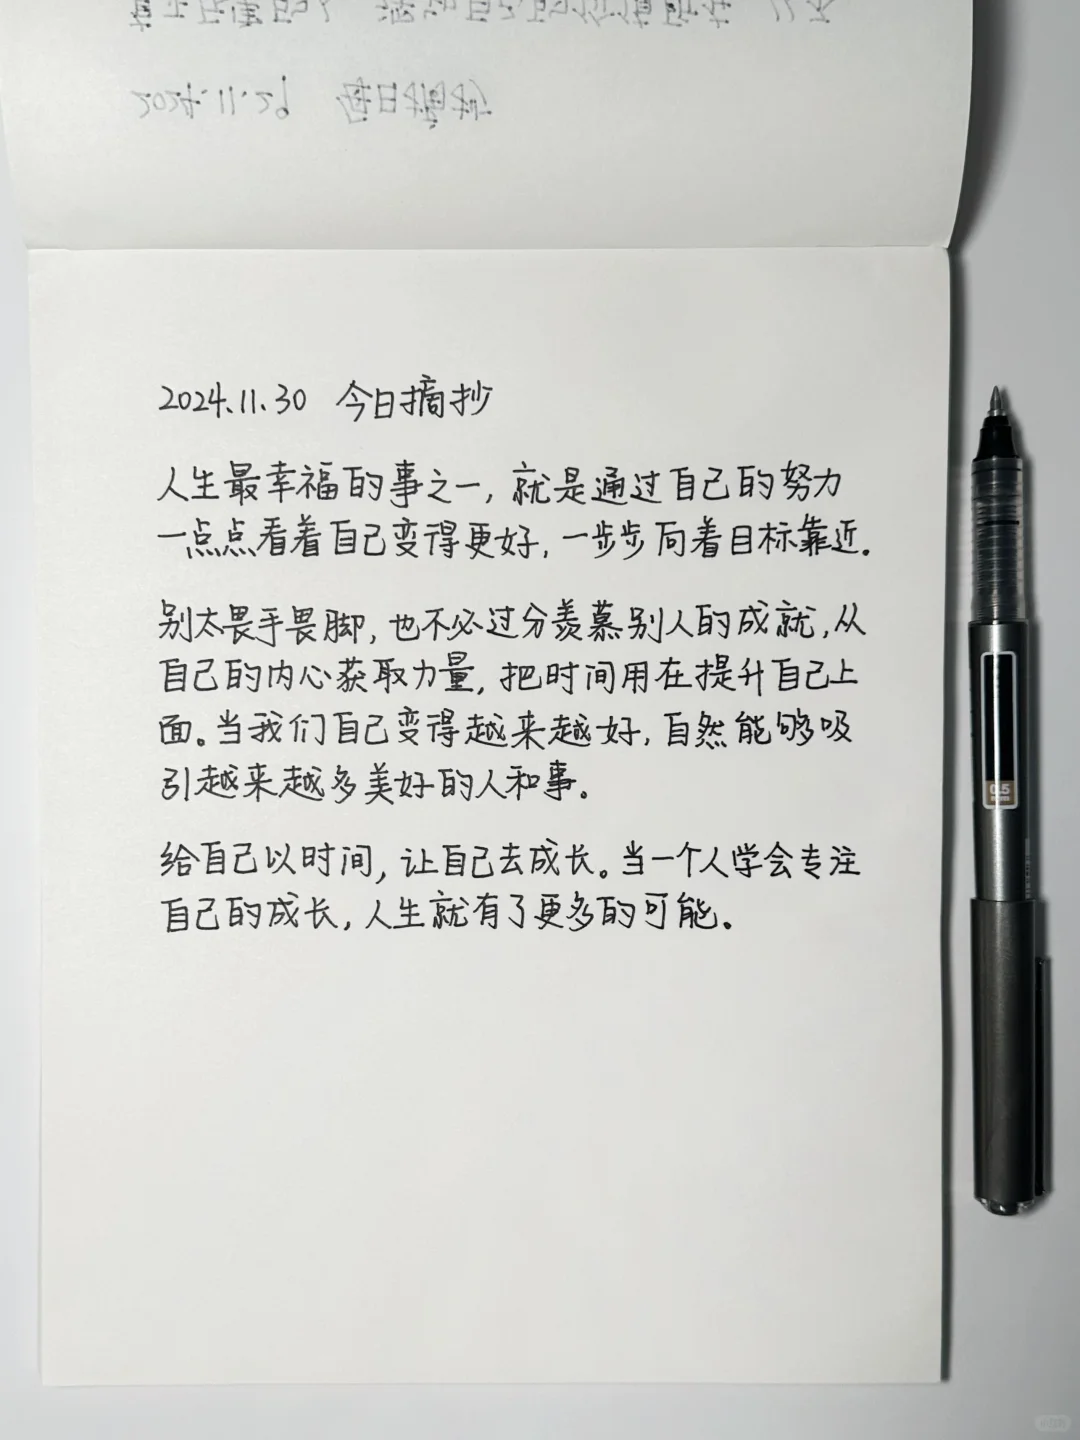 2024.11.29 每日摘抄
2024.11.30 今日摘抄
人生最幸福的事之一,就是通过自己的努力
一点点看着自己变得更好,一步步向着目标靠近。
别太畏手畏脚,也不必过分羡慕别人的成就,从
自己的内心获取力量,把时间用在提升自己上
面。当我们自己变得越来越好,自然能够吸
引越来越多美好的人和事。
给自己以时间,让自己去成长。当一个人学会专注
自己的成长,人生就有了更多的可能。
0.5